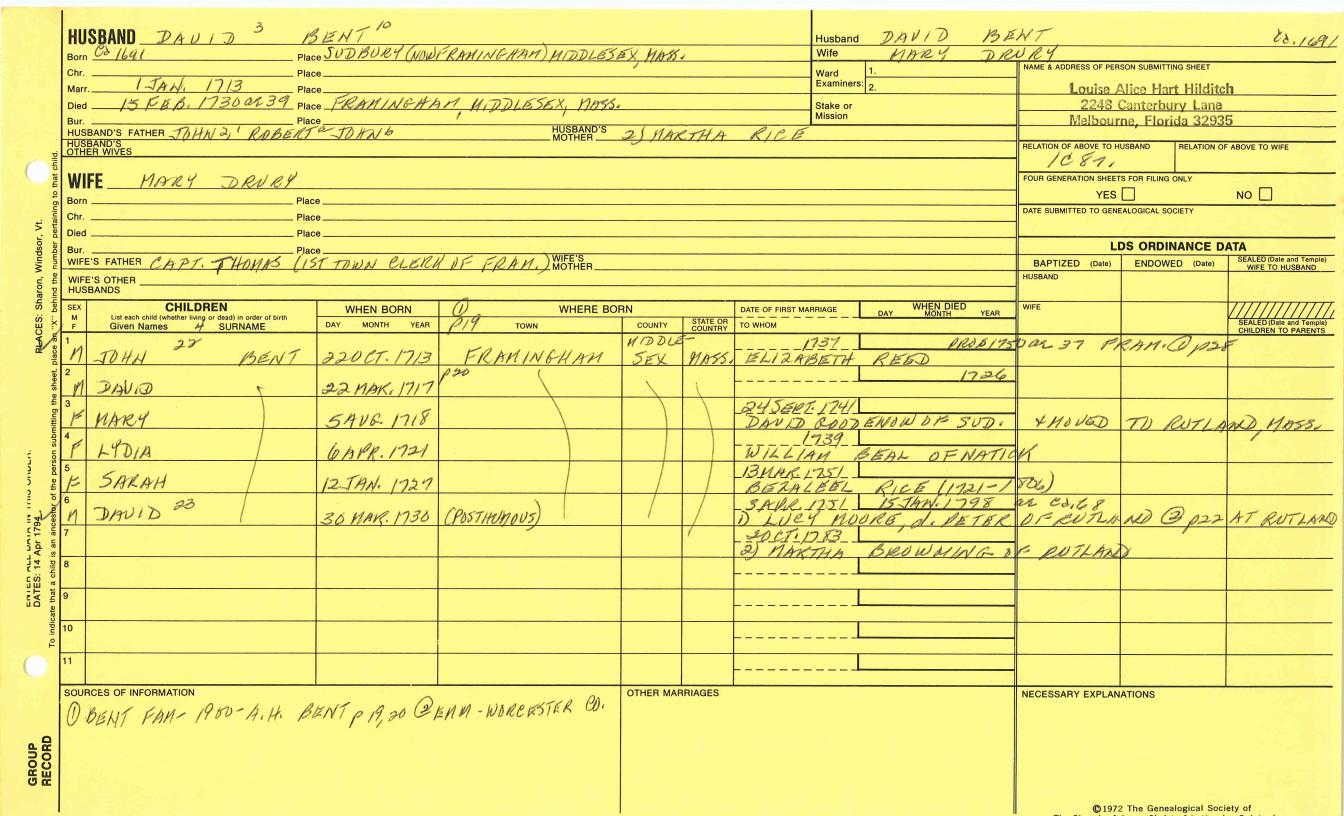 HUSBAND DAVID 3 BENT 10
Born Ca 1691 Place SUDBURY (NOW FRAMINGHAM) MIDDLESEX, MASS.
Chr. Place
Marr. 1 JAN. 1713 Place
Died 15 FEB. 1730 or 39 Place FRAMINGHAM, MIDDLESEX, MASS.
Bur. Place
HUSBAND'S FATHER JOHN 2, ROBERT JOHN 6 HUSBAND'S MOTHER 2) MARTHA RICE
HUSBAND'S OTHER WIVES
WIFE MARY DRURY
Born Place
Chr. Place
Died Place
Bur. Place
WIFE'S FATHER CAPT. THOMAS (1ST TOWN CLERK OF FRAM.) WIFE'S MOTHER
WIFE'S OTHER HUSBANDS
Husband DAVID BENT Ca. 1691
Wife MARY DRURY
Ward Examiners: 1.
2.
Stake or Mission
NAME & ADDRESS OF PERSON SUBMITTING SHEET
Louise Alice Hart Hilditch
2248 Canterbury Lane
Melbourne, Florida 32935
RELATION OF ABOVE TO HUSBAND RELATION OF ABOVE TO WIFE
1C 8r.
FOUR GENERATION SHEETS FOR FILING ONLY
YES NO
DATE SUBMITTED TO GENEALOGICAL SOCIETY
LDS ORDINANCE DATA
BAPTIZED (Date) ENDOWED (Date) SEALED (Date and Temple) WIFE TO HUSBAND
HUSBAND
WIFE
SEALED (Date and Temple) CHILDREN TO PARENTS
SEX M F CHILDREN WHEN BORN ① WHERE BORN DATE OF FIRST MARRIAGE WHEN DIED
List each child (whether living or dead) in order of birth
Given Names 4 SURNAME DAY MONTH YEAR p19 TOWN COUNTY STATE OR COUNTRY TO WHOM DAY MONTH YEAR
1 M JOHN 22 BENT 22 OCT. 1713 FRAMINGHAM MIDDLE-SEX MASS. 1737 PROB 1750 or 37 FRAM. @ p28
ELIZABETH REED
2 M DAVID 22 MAR. 1717 p20 1726
3 F MARY 5 AUG. 1718 24 SEPT. 1741
DAVID GOODENOW OF SUD. + MOVED TO RUTLAND, MASS.
4 F LYDIA 6 APR. 1721 1739
WILLIAM BEAL OF NATICK
5 F SARAH 12 JAN. 1727 13 MAR. 1751
BEZALEEL RICE (1721-1806)
6 M DAVID 23 30 MAR. 1730 (POSTHUMOUS) 3 APR. 1751 15 JAN. 1798 or Ca. 68
1) LUCY MOORE, d. PETER OF RUTLAND ② p22 AT RUTLAND
7 2 OCT. 1783
2) MARTHA BROWNING OF RUTLAND
8
9
10
11
SOURCES OF INFORMATION
① BENT FAM - 1900 - A.H. BENT p 19, 20 ② EAM - WORCESTER CO.
OTHER MARRIAGES
NECESSARY EXPLANATIONS
©1972 The Genealogical Society of
PLACES: Sharon, Windsor, Vt.
ENTER ALL DATA IN THIS ORDER:
DATES: 14 Apr 1794
To indicate that a child is an ancestor of the person submitting the sheet, place an "X" behind the number pertaining to that child.
GROUP RECORD